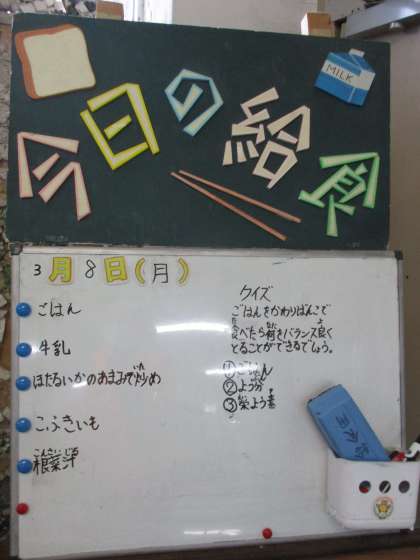 今日の給食
MILK
3月8日(月)
ごはん
牛乳
ほたるいかのあまみそ炒め
こふきいも
根菜汁
クイズ
ごはんをかわりばんこで
食べたら何をバランス良く
とることができるでしょう。
①ごはん
②よう分
③栄よう素